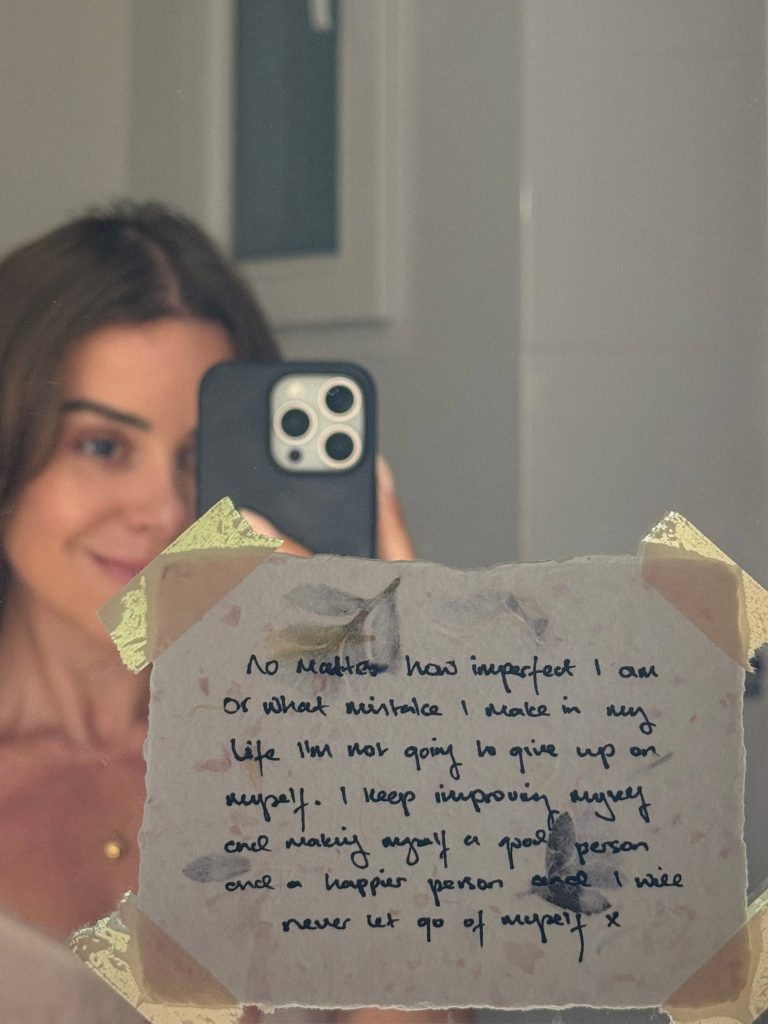 No matter how imperfect I am
or what mistake I make in my
life I'm not going to give up on
myself. I keep improving myself
and making myself a good person
and a happier person and I will
never let go of myself x